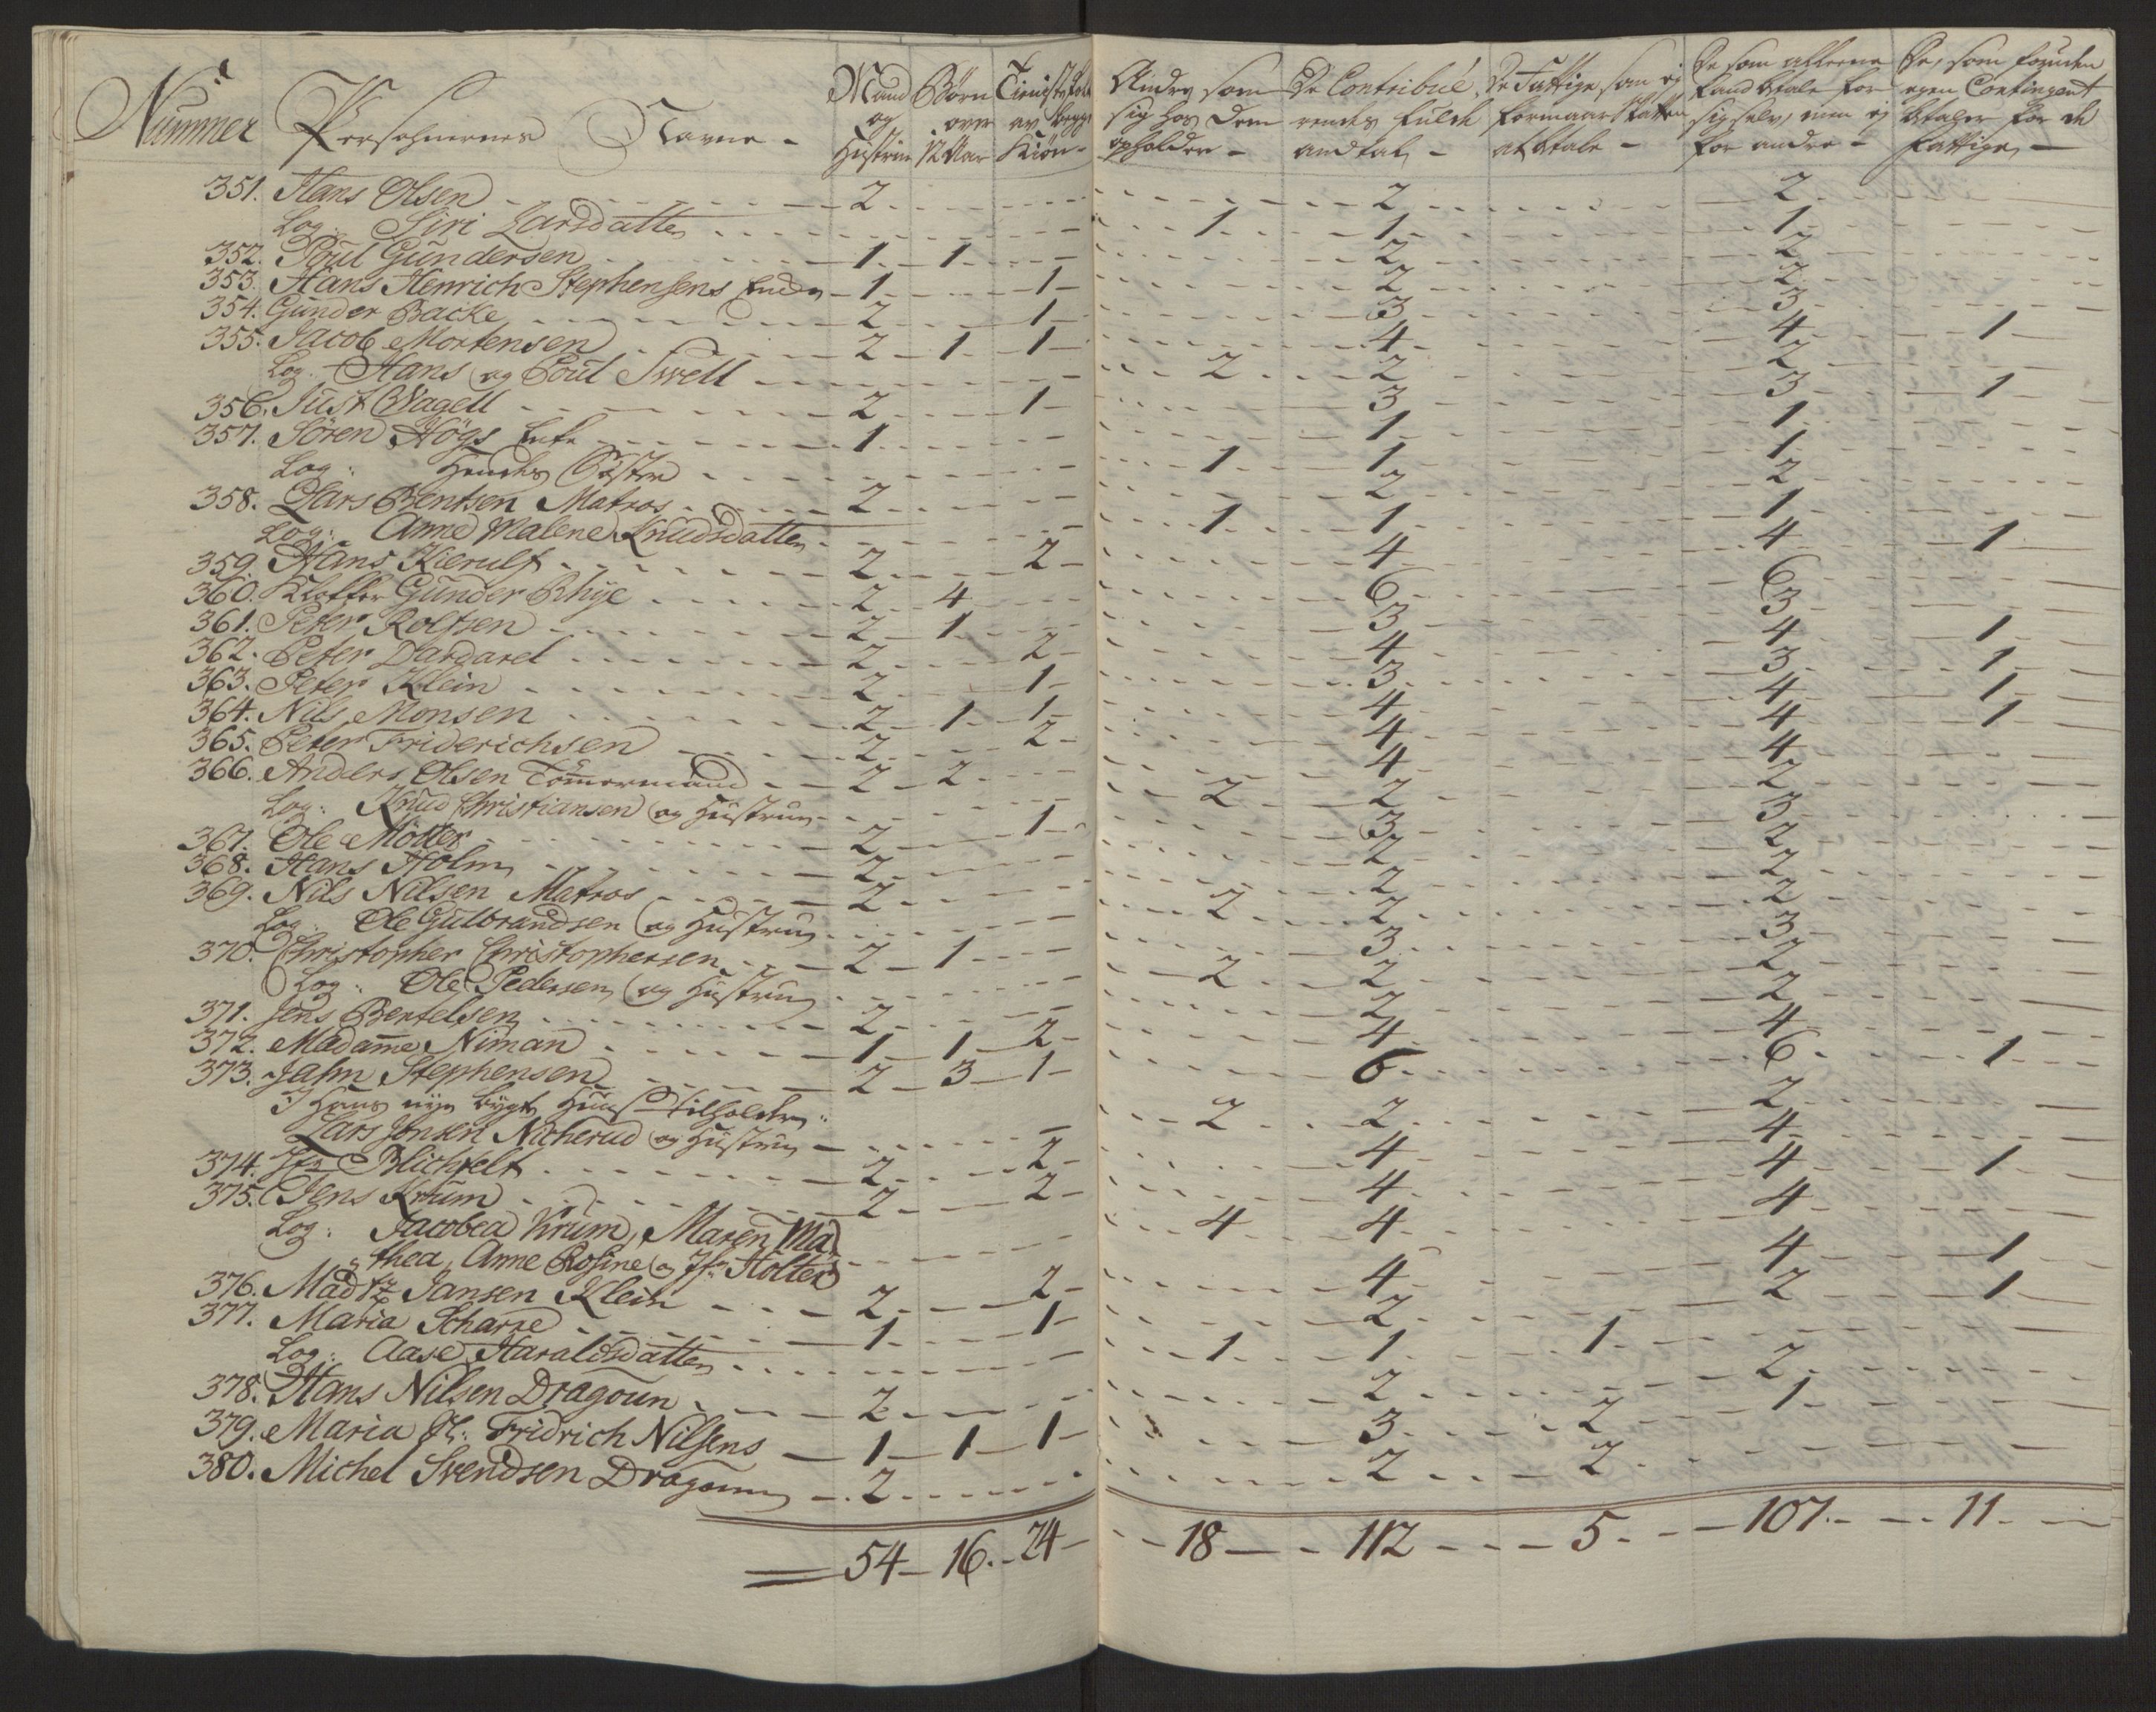 Nummer Persohnernes Navne - Mand og Hustrue Børn over 12 Aar Tieniste folk av begge Kiøn - Andre som sig hos dem opholder - De Contribuerendes fulde andtal - De Fattige som ej formaar Skatten at betale - De som alleene kand betale for sig selv, men ej for andre - De, som foruden egen Contingent betaler for de fattige -
351. Hans Olsen 2 2 2
Log: Siri Larsdatter 1 1 1
352. Poul Gundersen 1 1 2 2
353. Hans Henrich Stephensens Encke 1 1 2 2
354. Gunder Backe 2 1 3 3
355. Jacob Mortensen 2 1 1 4 4 1
Log: Hans og Poul Swell 2 2 2
356. Just Wagell 2 1 3 3 1
357. Sören Högs Enke 1 1 1
Log: Hendes Søster 1 1 1
358. Lars Bentsen Matros 2 2 2
Log: Anne Malene Knudsdatter 1 1 1
359. Hans Kierulf 2 2 4 4 1
360. Klokker Gunder Rhye 2 4 6 6
361. Peter Rolfsen 2 1 3 3
362. Peter Dardarel 2 2 4 4 1
363. Peter Klein 2 1 3 3 1
364. Nils Monsen 2 1 1 4 4 1
365. Peter Friderichsen 2 2 4 4 1
366. Anders Olsen Tömmermand 2 2 4 4
Log: Knud Christiansen og Hustrue 2 2 2
367. Ole Möller 2 1 3 3
368. Hans Holm 2 2 2
369. Nils Nilsen Matros 2 2 2
Log: Ole Gulbrandsen og Hustrue 2 2 2
370. Christopher Christophersen 2 1 3 3
Log: Ole Pedersen og Hustrue 2 2 2
371. Jens Bertelsen 2 2 2
372. Madame Niman 1 1 2 4 4
373. Jahn Stephensen 2 3 1 6 6 1
I Hans nye bygte Huus tilholder:
Lars Jonsen Nicherud og Hustrue 2 2 2
374. Hr Blichfelt 2 2 4 4
375. Jens Krum 2 2 4 4 1
Log: Jacobea Krum, Maren Ma
thea, Anne Rosine og Jfr Holter 4 4 4
376. Madtz Jansen Klein 2 2 4 4 1
377. Maria Scharpe 1 1 2 2 1
Log: Aase Haraldsdatter 1 1 1
378. Hans Nilsen Dragoun 2 2 2
379. Maria Sl: Fridrich Nilsens 1 1 1 3 2 1
380. Michel Svendsen Dragoun 2 2 2
54 16 24 18 112 5 107 11